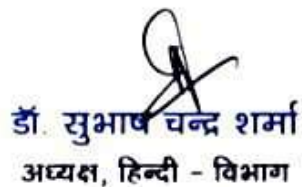 डॉ. सुभाष चन्द्र शर्मा
अध्यक्ष, हिन्दी - विभाग